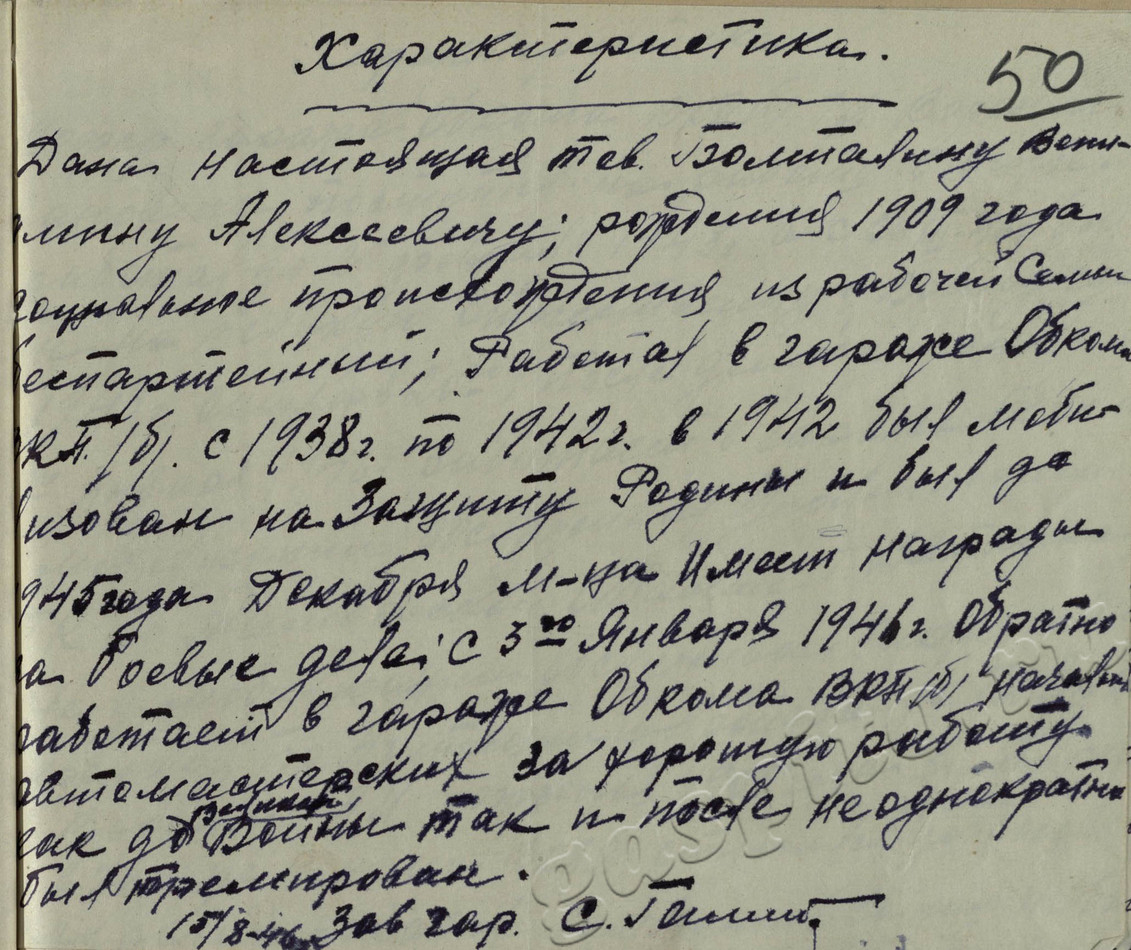 Характеристика.
50
Дана настоящая тов. Болталину Вени-
амину Алексеевичу; рождения 1909 года
социальное происхождения из рабочей Семьи
беспартейный; Работал в гараже Обкома
ВКП/б/. с 1938г. по 1942г. в 1942 был моби-
лизован на Защиту Родины и был до
1945 года Декабря м-ца Имеет награды
за боевые дела; с 3го Января 1946г. Обратно
работает в гараже Обкома ВКП/б/ начальн
автомастерских за хорошую работу
как до Войны так и после неоднократно
был премирован.
15/8-46 Зав гар. С.
gaspito